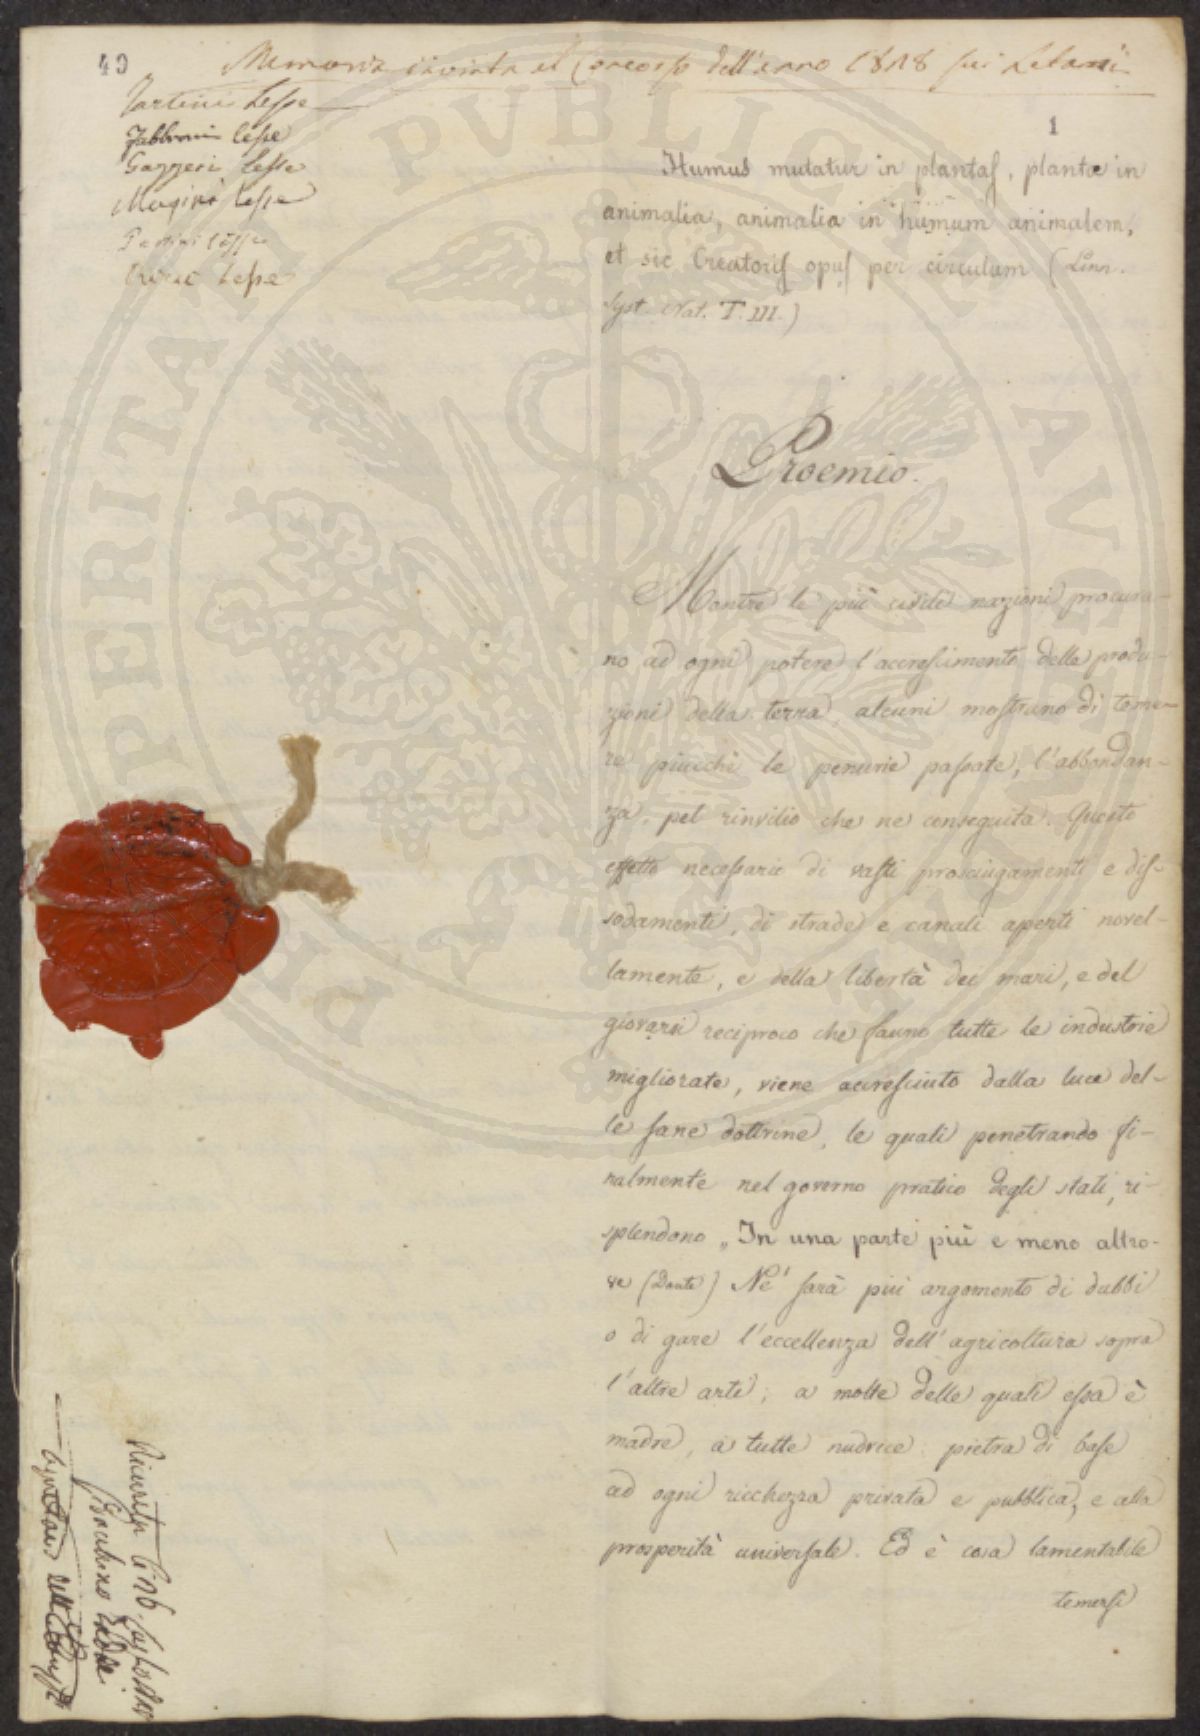 40
Memoria inviata al Concorso dell'anno 1818 sui Letami
Tartini lesse
Fabbroni lesse
Gazzeri lesse
lesse
lesse
lesse
1
Humus mutatur in plantas, plantæ in
animalia, animalia in humum animalem,
et sic Creatoris opus per circulum (Linn.
Syst. Nat. T. III.)
Proemio.
Mentre le più civili nazioni procura-
no ad ogni potere l'accrescimento delle produ-
zioni della terra, alcuni mostrano di teme-
re piucchè le penurie passate, l'abbondan-
za, pel rinvilio che ne conseguita. Questo
effetto necessario di vasti prosciugamenti e dis-
sodamenti, di strade e canali aperti novel-
lamente, e della libertà dei mari, e del
giovarsi reciproco che fanno tutte le industrie
migliorate, viene accresciuto dalla luce del-
le sane dottrine, le quali penetrando fi-
nalmente nel governo pratico degli stati, ri-
splendono „In una parte più e meno altro-
ve (Dante) Nè sarà più argomento di dubbi
o di gare l'eccellenza dell'agricoltura sopra
l'altre arti; a molte delle quali essa è
madre, a tutte nudrice: pietra di base
ad ogni ricchezza privata e pubblica, e alla
prosperità universale. Ed è cosa lamentabile
temersi
PROSPERITATI PVBLICAE AVGENDAE